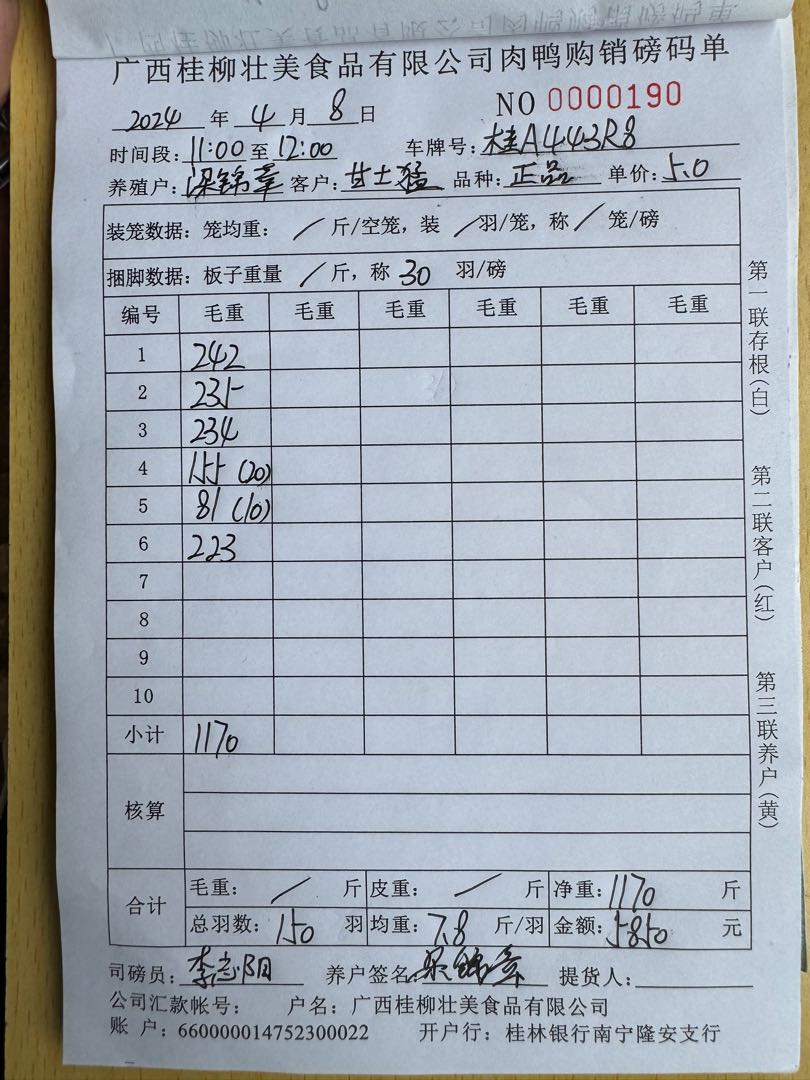 广西桂柳壮美食品有限公司肉鸭购销磅码单
2024 年 4 月 8 日 NO 0000190
时间段: 11:00 至 12:00 车牌号: 桂A443R8
养殖户: 梁锦章 客户: 甘土猛 品种: 正品 单价: 5.0
装笼数据: 笼均重: / 斤/空笼, 装 / 羽/笼, 称 / 笼/磅
捆脚数据: 板子重量 / 斤, 称 30 羽/磅
编号 毛重 毛重 毛重 毛重 毛重 毛重
1 242
2 235
3 234
4 155 (20)
5 81 (10)
6 223
7
8
9
10
小计 1170
核算
合计 毛重: / 斤 皮重: / 斤 净重: 1170 斤
总羽数: 150 羽 均重: 7.8 斤/羽 金额: 5850 元
司磅员: 李志阳 养户签名: 梁锦章 提货人:
公司汇款帐号: 户名: 广西桂柳壮美食品有限公司
账 户: 660000014752300022 开户行: 桂林银行南宁隆安支行
第一联存根(白)
第二联客户(红)
第三联养户(黄)